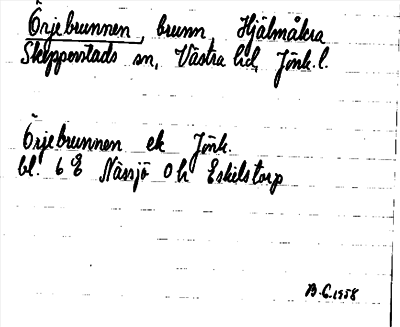 Örjebrunnen, brunn, Hjälmåkra
Skepperstads sn, Västra hd, Jönk. l.
Örjebrunnen ek Jönk.
bl. 6 E Nässjö 0 h Eskilstorp
B. G. 1958